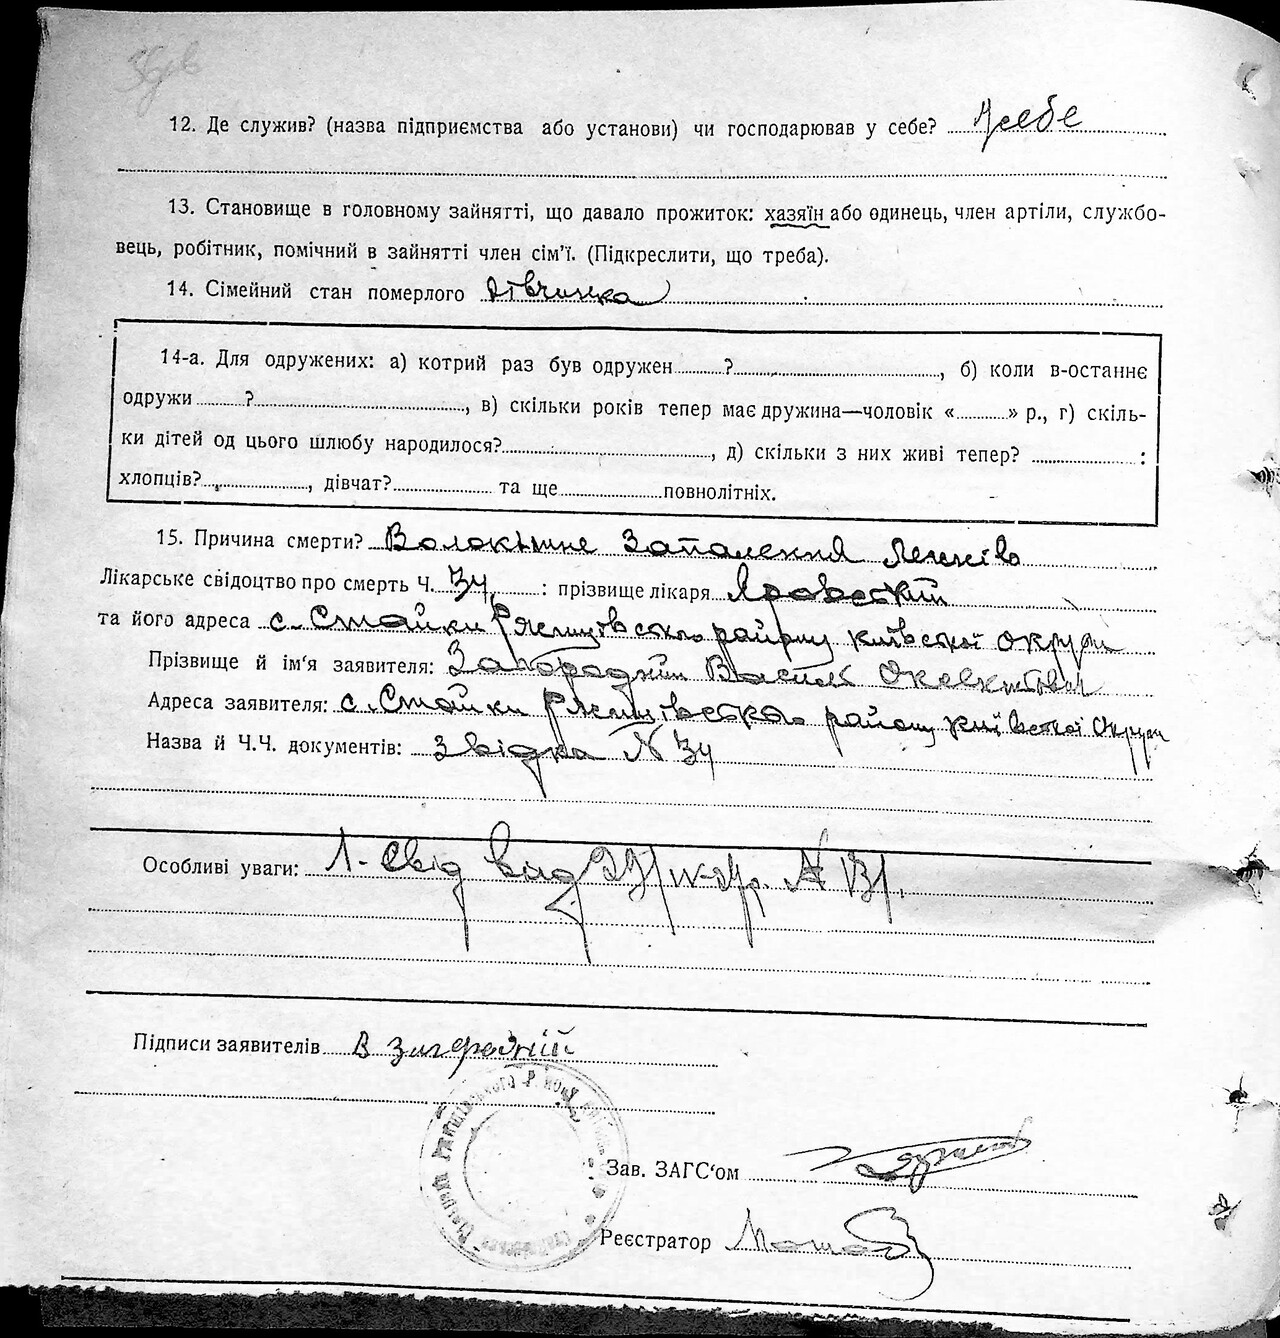 12. Де служив? (назва підприємства або установи) чи господарював у себе? У себе
13. Становище в головному зайнятті, що давало прожиток: хазяїн або одинець, член артіли, службо-
вець, робітник, помічний в зайнятті член сім'ї. (Підкреслити, що треба).
14. Сімейний стан померлого дівчинка
14-а. Для одружених: а) котрий раз був одружен ? , б) коли в-останнє
одружи ? , в) скільки років тепер має дружина—чоловік « » р., г) скіль-
ки дітей од цього шлюбу народилося? , д) скільки з них живі тепер? :
хлопців? , дівчат? та ще повнолітніх.
15. Причина смерти? Запалення Легенів
Лікарське свідоцтво про смерть Ч. 34 : прізвище лікаря Яровський
та його адреса с. Стайки Ржищівського району Київської округи
Прізвище й ім'я заявителя: Загородній Василь
Адреса заявителя: с. Стайки Ржищівського району Київської Округи
Назва й Ч.Ч. документів: Звідка N 34
Особливі уваги: Л-Свід вид N
Підписи заявителів В Загородній
Зав. ЗАГС'ом
Реєстратор